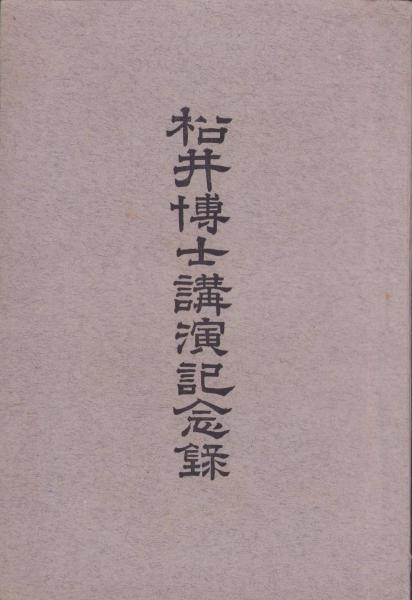 松井博士講演記念録